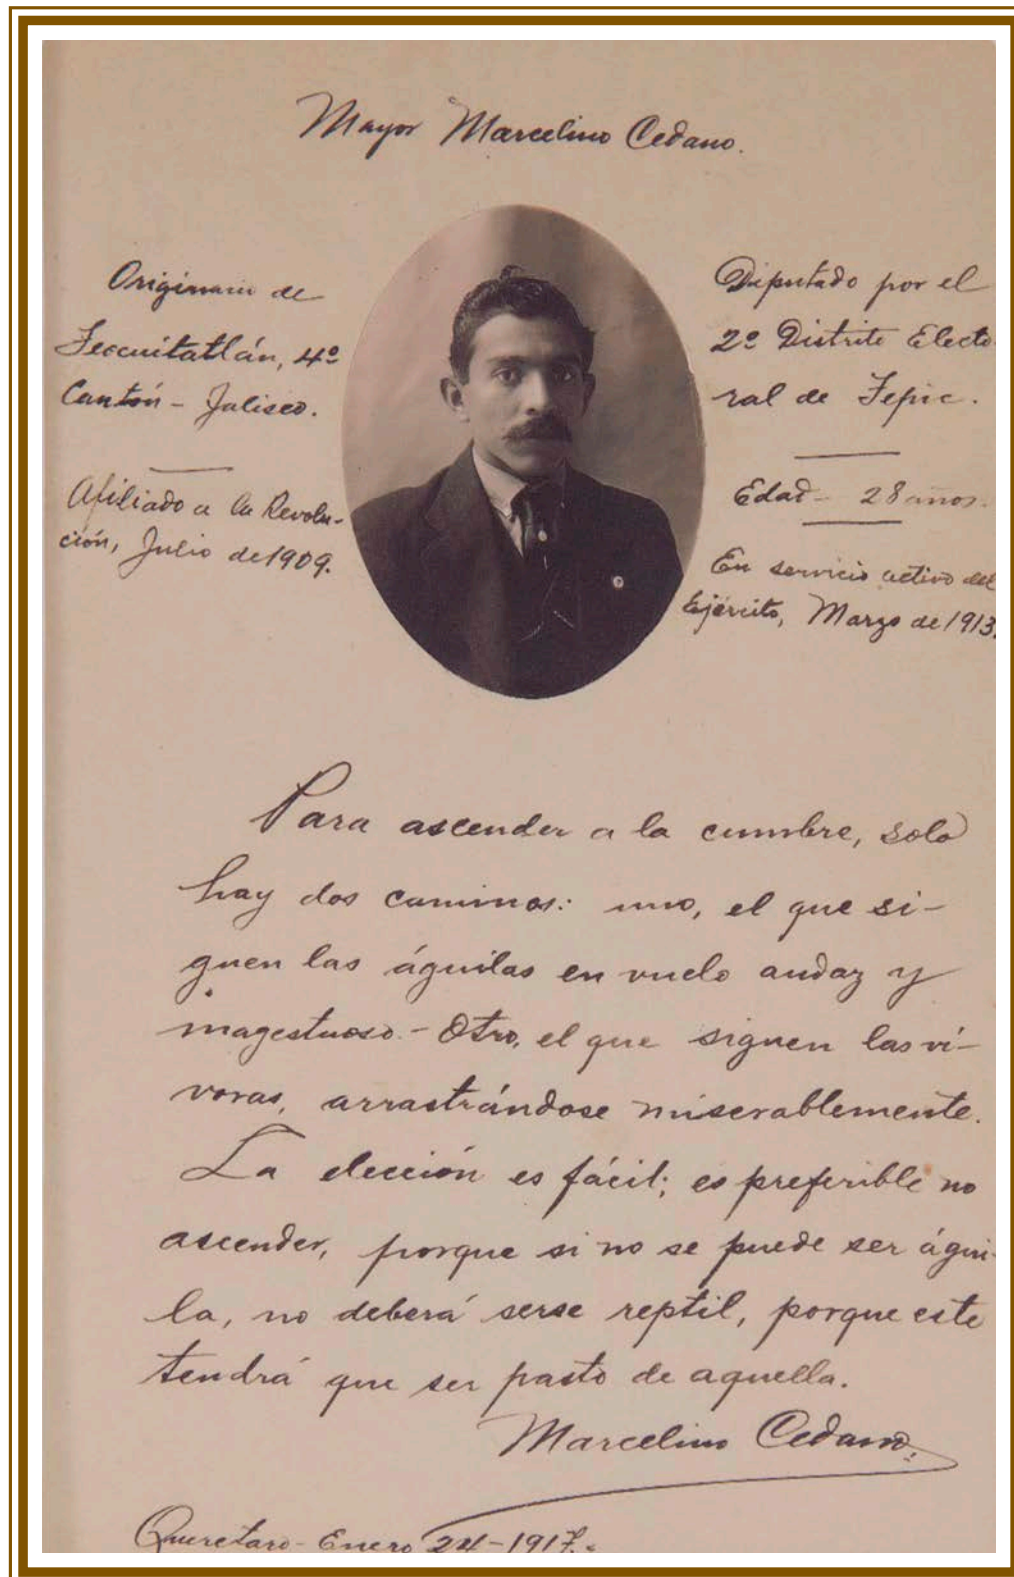 Mayor Marcelino Cedano.
Originario de
Teocuitatlán, 4º
Cantón - Jalisco.
Afiliado a la Revolu-
ción, Julio de 1909.
Diputado por el
2º Distrito Electo-
ral de Tepic.
Edad - 28 años.
En servicio activo del
Ejército, Marzo de 1913.
Para ascender a la cumbre, solo
hay dos caminos: uno, el que si-
guen las águilas en vuelo audaz y
magestuoso. - Otro, el que siguen las ví-
voras, arrastrándose miserablemente.
La elección es fácil; es preferible no
ascender, porque si no se puede ser águi-
la, no deberá serse reptil, porque este
tendrá que ser pasto de aquella.
Marcelino Cedano.
Queretaro - Enero 24 - 1917.